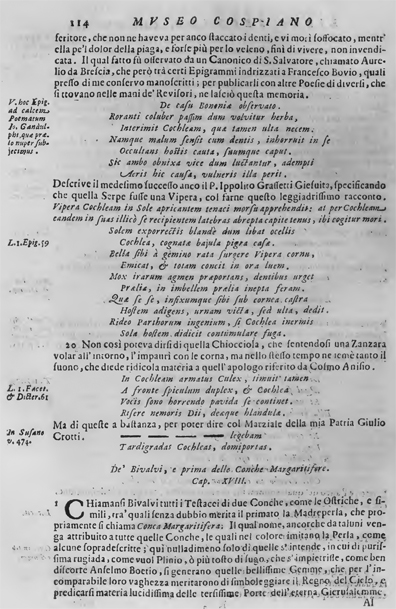 114 MVSEO COSPIANO
feritore, che non ne haveva per anco staccato i denti, e vi morì soffocato, mentr'
ella pe'l dolor della piaga, e forse più per lo veleno, finì di vivere, non invendi-
cata. Il qual fatto fù osservato da un Canonico di S. Salvatore, chiamato Aure-
lio da Brescia, che però trà certi Epigrammi indrizzati a Francesco Bovio, quali
presso di me conservo manoscritti; per publicarli con altre Poesie di diversi, che
si trovano nelle mani de' Revisori, ne lasciò questa memoria.
V. hoc Epig.
ad calcem
Poematum
Io. Gandul-
phi quæ præ-
lo nuper sub-
jecimus.
De casu Bononiæ observato.
Roranti coluber passim dum volvitur herba,
Interimit Cochleam, qua tamen ulta necem.
Namque malum sensit cum dentis, inhorruit in se
Occultans hostis cauta, suumque caput.
Sic ambo obnixa vice dum luctantur, adempti
Aeris hic causa, vulneris illa perit.
Descrive il medesimo successo anco il P. Ippolito Grassetti Giesuita, specificando
che quella Serpe fusse una Vipera, col farne questo leggiadrissimo racconto.
Vipera Cochleam in Sole apricantem tenaci morsu apprehendit; at per Cochleam
eandem in suas illicò se recipientem latebras abrepta capite tenus, ibi cogitur mori.
L. 1. Epig. 59
Solem exporrectis blandè dum libat ocellis
Cochlea, cognata bajula pigra casæ.
Bella sibi à gemino rata surgere Vipera cornu,
Emicat, & totam concit in ora luem.
Mox irarum agmen præportans, dentibus urget
Prælia, in imbellem prælia inepta feram.
Quæ se se, infixumque sibi sub cornea castra
Hostem adigens, urnam victa, sed ulta, dedit.
Rideo Parthorum ingenium, si Cochlea inermis
Sola hostem didicit constimulare fuga.
20 Non così poteva dirsi di quella Chiocciola, che sentendosi una Zanzara
volar all' intorno, l'impaurì con le corna, ma nello stesso tempo ne temè tanto il
suono, che diede ridicola materia a quell'apologo riferito da Colmo Anisio.
L. 1. Facet.
& Dister. 61
In Cochleam armatus Culex, timuit tamen
A fronte spiculum duplex, & Cochlea
Vocis sono horrendo pavida se continet.
Risere nemoris Dii, deæque blandula.
Ma di queste a bastanza, per poter dire col Marziale della mia Patria Giulio
Crotti.
In Susano
v. 474.
legebam
Tardigradas Cochleas, domiportas.
De' Bivalvi, e prima delle Conche Margaritifere.
Cap. XVIII.
1 CHiamansi Bivalvi tutti i Testacei di due Conche, come le Ostriche, e si-
mili, tra' quali senza dubbio merita il primato la Madreperla, che pro-
priamente si chiama Conca Margaritifera: Il qual nome, ancorche da taluni ven-
ga attribuito a tutte quelle Conche, le quali nel colore imitano la Perla, come
alcune sopradescritte; quì nulladimeno solo di quelle s'intende, in cui di puris-
sima rugiada, come vuol Plinio, ò più tosto di sugo, che s'impietrisce, come ben
discorre Anselmo Boetio, si generano quelle bellissime Gemme, che per l'in-
comparabile loro vaghezza meritarono di simboleggiare il Regno del Cielo, e
predicarsi materia lucidissima delle tersissime Porte dell'eterna Gierusalemme.
Al